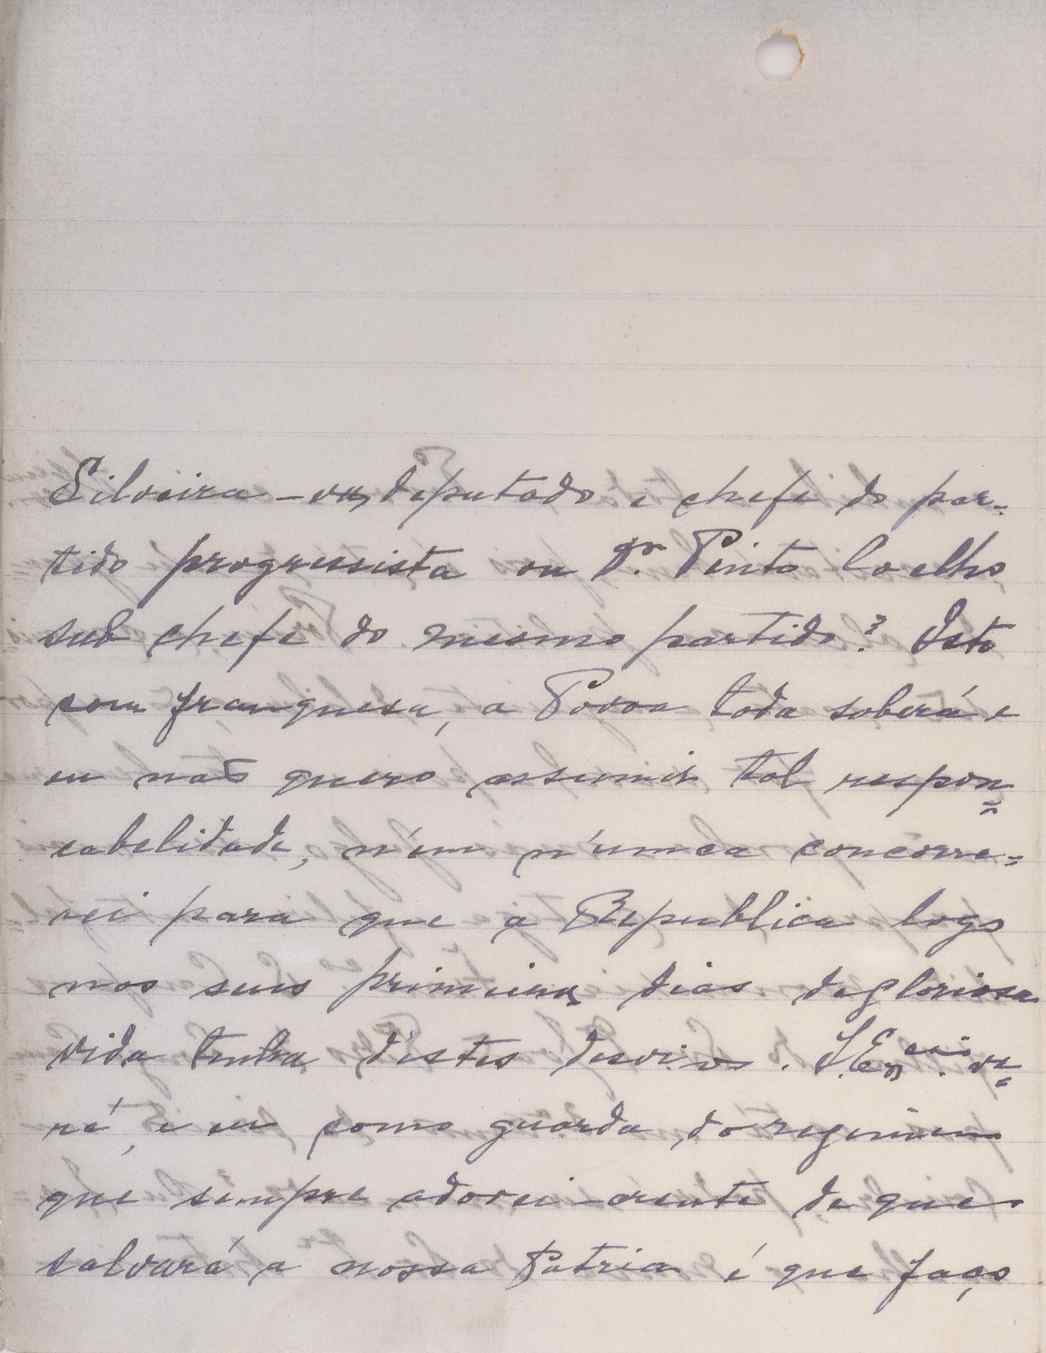 Silveira - ex deputado e chefe do par-
tido progressista ou Dr. Pinto Coelho,
sub chefe do mesmo partido? Isto
com franquesa, a Povoa toda saberá e
eu não quero assumir tal respon=
cabelidade, n'em n'umca concorre=
rei para que a Republica logo
nos seus primeiros dias de gloriosa
vida tenha destes desvios. S. Exᶜⁱᵃ. ve=
rá, e eu como guarda do regimen
que sempre adorei crente de que
salvará a nossa Patria é que faço